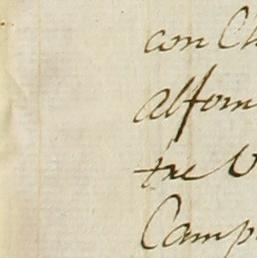 con Ch
alforn
tre V
Camp